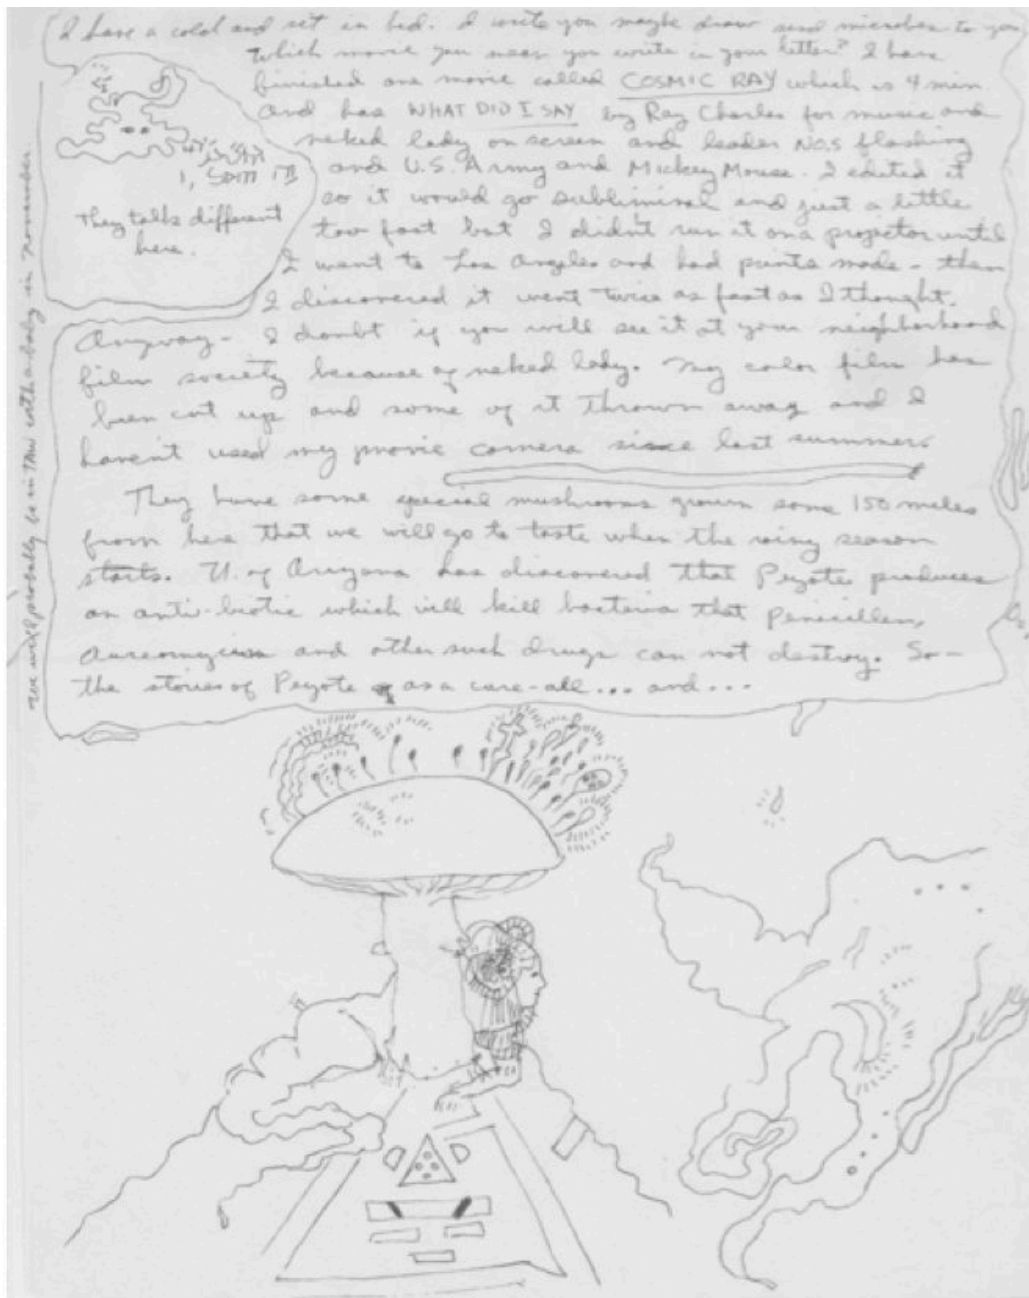 I have a cold and set in bed. I write you maybe draw and microbes to you
Which movie you mean you write in your letter? I have
finished one movie called COSMIC RAY which is 4 min.
and has WHAT DID I SAY by Ray Charles for music and
neked lady on screen and leader No.s flashing
and U.S. Army and Mickey Mouse. I edited it
so it would go subliminal and just a little
too fast but I didn't run it on a projector until
I went to Los Angeles and had prints made - then
I discovered it went twice as fast as I thought.
They talks different
here.
Anyway - I doubt if you will see it at your neighborhood
film society because of neked lady. My color film has
been cut up and some of it thrown away and I
haven't used my movie camera since last summer.
They have some special mushrooms grown some 150 miles
from here that we will go to taste when the rainy season
starts. U. of Arizona has discovered that Peyote produces
an anti-biotic which will kill bacteria that Penicillen,
Aureomycin and other such drugs can not destroy. So -
the stories of Peyote as a cure-all... and...
we will probably be in with a baby in November.